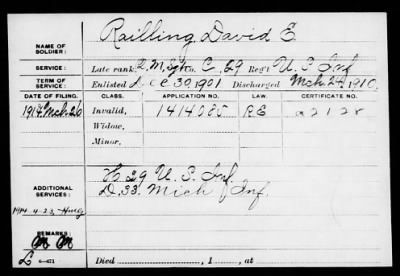 NAME OF SOLDIER: Railling, David E
SERVICE: Late rank, Q.M. Sgt Co. C, 29 Reg't U.S. Inf
TERM OF SERVICE: Enlisted Dec 30, 1901 Discharged Mch 24, 1910
DATE OF FILING. CLASS. APPLICATION NO. LAW. CERTIFICATE NO.
1914 Mch 26 Invalid, 1414085 RE 22128
Widow,
Minor,
H 29 U.S. Inf
ADDITIONAL SERVICES: D. 33. Mich Inf.
1914 4-23,
REMARKS:
M M
L 6-471 Died , 1 , at